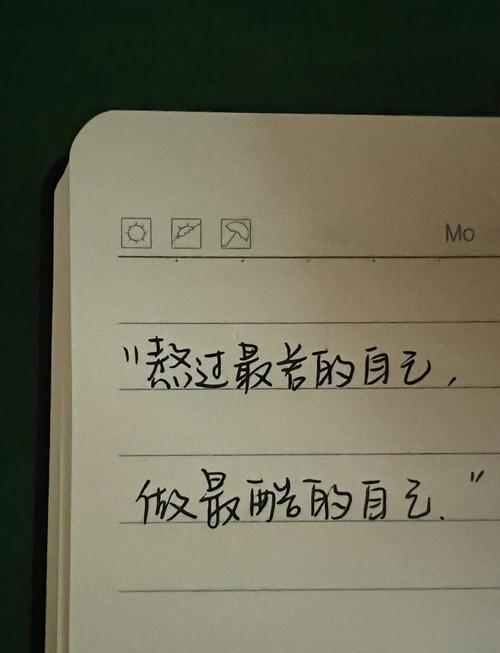 Mo
"熬过最苦的自己,
做最酷的自己."